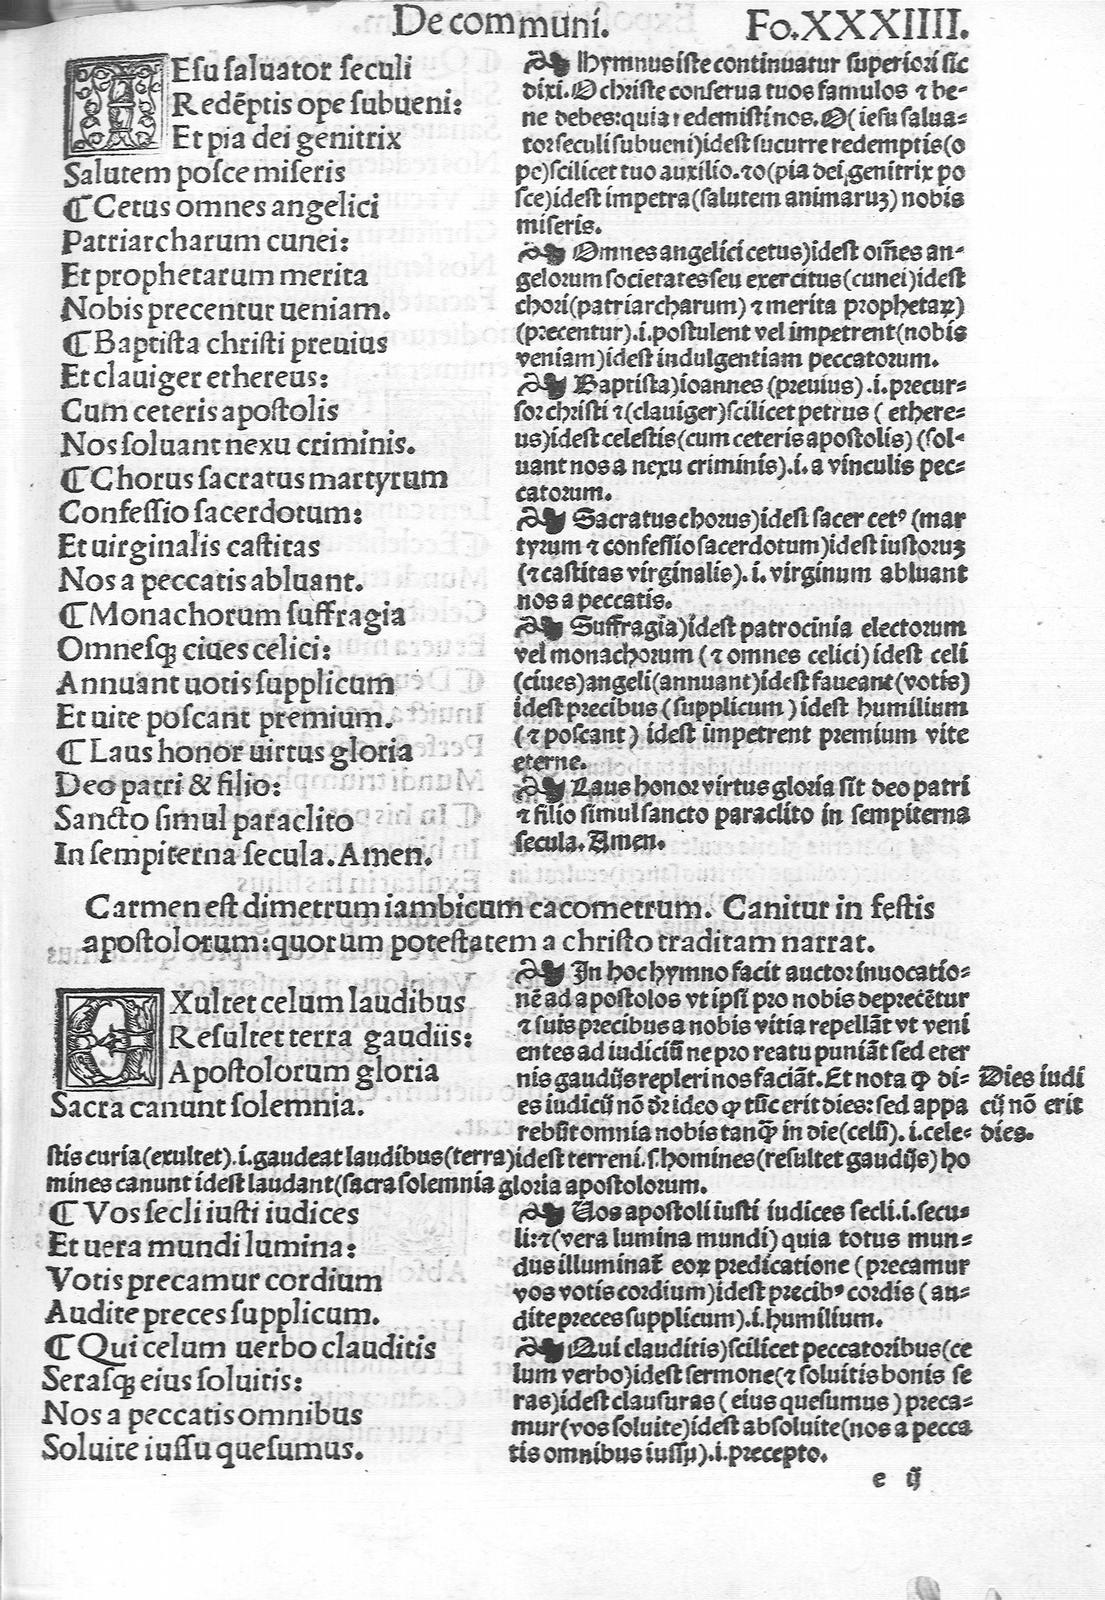 De communi. Fo.XXXIIII.
IEsu saluator seculi
Redēptis ope subueni:
Et pia dei genitrix
Salutem posce miseris
¶ Cetus omnes angelici
Patriarcharum cunei:
Et prophetarum merita
Nobis precentur ueniam.
¶ Baptista christi preuius
Et clauiger ethereus:
Cum ceteris apostolis
Nos soluant nexu criminis.
¶ Chorus sacratus martyrum
Confessio sacerdotum:
Et uirginalis castitas
Nos a peccatis abluant.
¶ Monachorum suffragia
Omnesqꝫ ciues celici:
Annuant uotis supplicum
Et uite poscant premium.
¶ Laus honor uirtus gloria
Deo patri & filio:
Sancto simul paraclito
In sempiterna secula. Amen.
Hymnus iste continuatur superiori sic
dixi. O christe conserua tuos famulos ⁊ be-
ne debes: quia redemisti nos. O (iesu salua-
tor seculi subueni) idest sucurre redemptis (o
pe) scilicet tuo auxilio. ⁊ o (pia dei genitrix po
sce) idest impetra (salutem animaruꝫ) nobis
miseris.
Omnes angelici cetus) idest om̄es an-
gelorum societates seu exercitus (cunei) idest
chori (patriarcharum) ⁊ merita prophetaꝝ)
(precentur) .i. postulent vel impetrent (nobis
veniam) idest indulgentiam peccatorum.
Baptista) ioannes (preuius) .i. precur-
sor christi ⁊ (clauiger) scilicet petrus (ethere-
us) idest celestis (cum ceteris apostolis) (sol-
uant nos a nexu criminis) .i. a vinculis pec-
catorum.
Sacratus chorus) idest sacer cetꝰ (mar
tyrum ⁊ confessio sacerdotum) idest iustoruꝫ
(⁊ castitas virginalis). i. virginum abluant
nos a peccatis.
Suffragia) idest patrocinia electorum
vel monachorum (⁊ omnes celici) idest celi
(ciues) angeli (annuant) idest faueant (votis)
idest precibus (supplicum) idest humilium
(⁊ poscant) idest impetrent premium vite
eterne.
Laus honor virtus gloria sit deo patri
⁊ filio simul sancto paraclito in sempiterna
secula. Amen.
Carmen est dimetrum iambicum cacometrum. Canitur in festis
apostolorum: quorum potestatem a christo traditam narrat.
EXultet celum laudibus
Resultet terra gaudiis:
Apostolorum gloria
Sacra canunt solemnia.
In hoc hymno facit auctor inuocatio-
nē ad apostolos vt ipsi pro nobis deprecētur
⁊ suis precibus a nobis vitia repellāt vt veni
entes ad iudiciū ne pro reatu puniāt sed eter
nis gaudijs repleri nos faciāt. Et nota ꝙ di-
es iudicij nō dr̄ ideo ꝙ tūc erit dies: sed appa
rebūt omnia nobis tanꝙ̄ in die (celū). i. cele-
stis curia (exultet) .i. gaudeat laudibus (terra) idest terreni. s. homines (resultet gaudijs) ho
mines canunt idest laudant (sacra solemnia gloria apostolorum.
Dies iudi
cij nō erit
dies.
¶ Vos secli iusti iudices
Et uera mundi lumina:
Votis precamur cordium
Audite preces supplicum.
¶ Qui celum uerbo clauditis
Serasqꝫ eius soluitis:
Nos a peccatis omnibus
Soluite iussu quesumus.
Uos apostoli iusti iudices secli. i. secu-
li: ⁊ (vera lumina mundi) quia totus mun-
dus illuminat̄ eoꝝ predicatione (precamur
vos votis cordium) idest precibꝰ cordis (au-
dite preces supplicum) .i. humilium.
Qui clauditis) scilicet peccatoribus (ce
lum verbo) idest sermone (⁊ soluitis bonis se
ras) idest clausuras (eius quesumus) preca-
mur (vos soluite) idest absoluite (nos a pecca
tis omnibus iussu) .i. precepto.
e ij